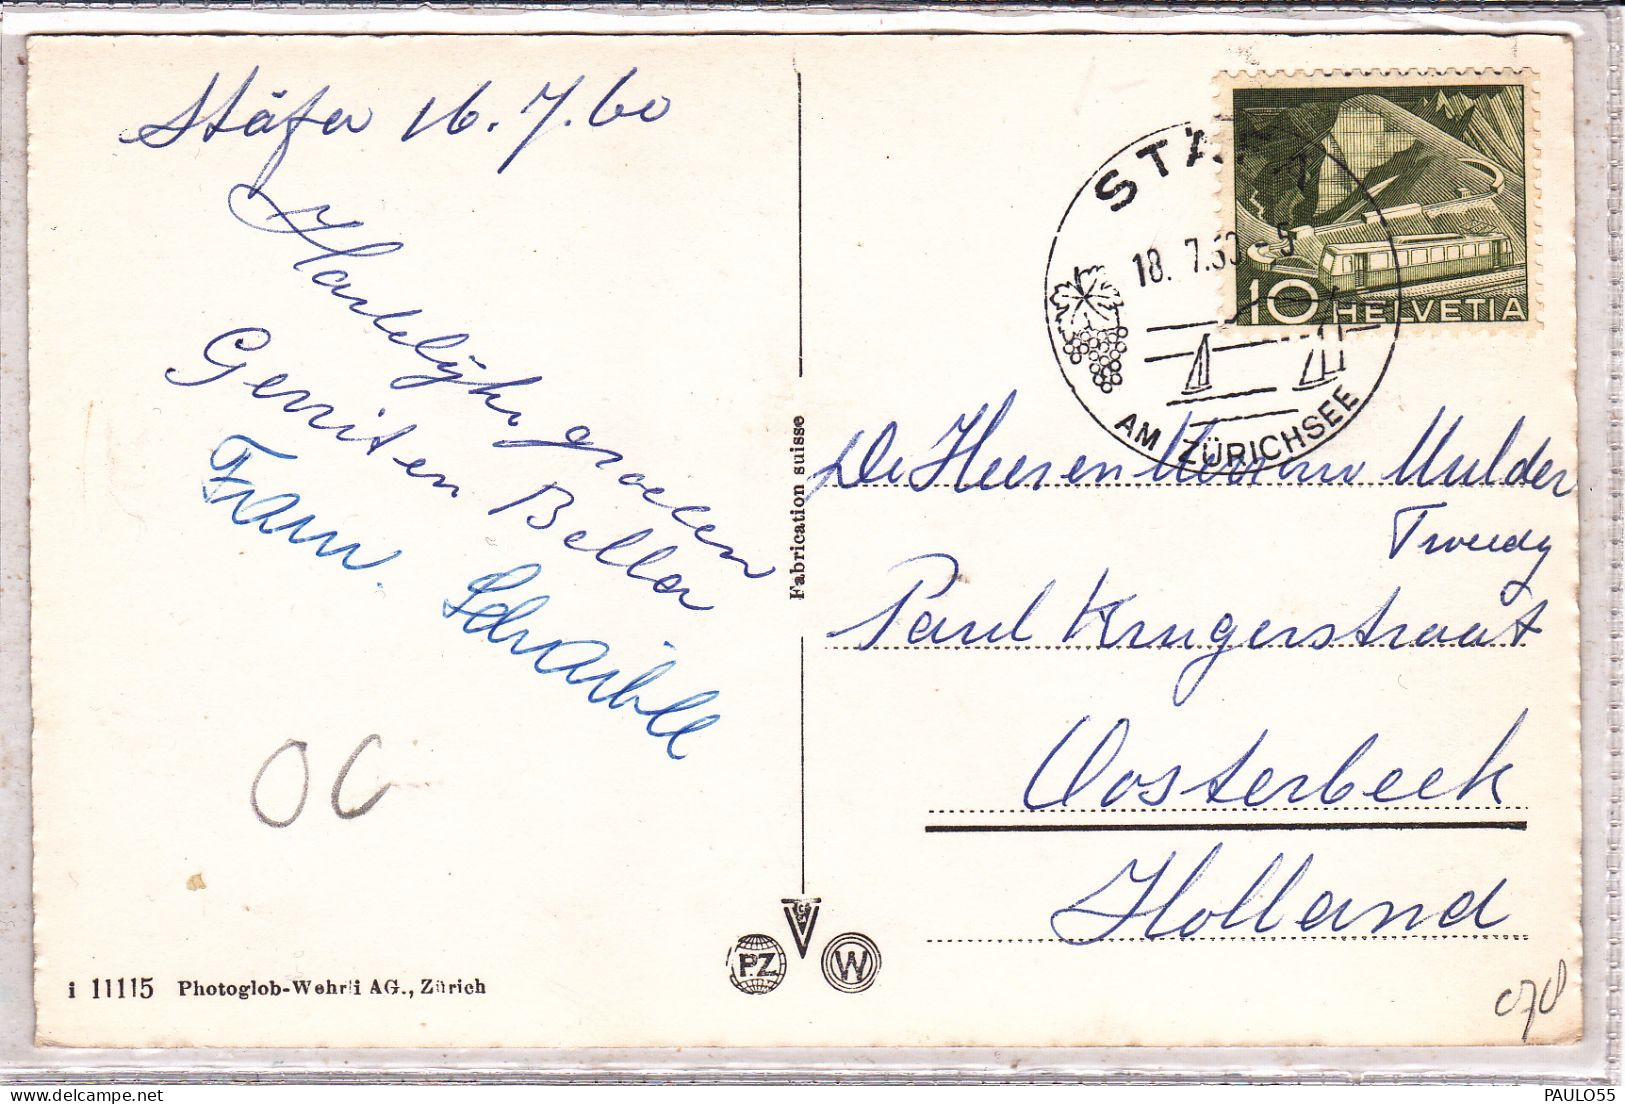 Stäfa 16.7.60
Hartelijke groeten
Gerrit en Bella
Fam. Schaible
OC
i 11115 Photoglob-Wehrli AG., Zürich
Fabrication suisse
PZ
W
STÄFA
18. 7.60 - 5
AM ZÜRICHSEE
10 HELVETIA
De Heer en Mulder
Paul Krugerstraat
Oosterbeek
Holland
070
PAULO55